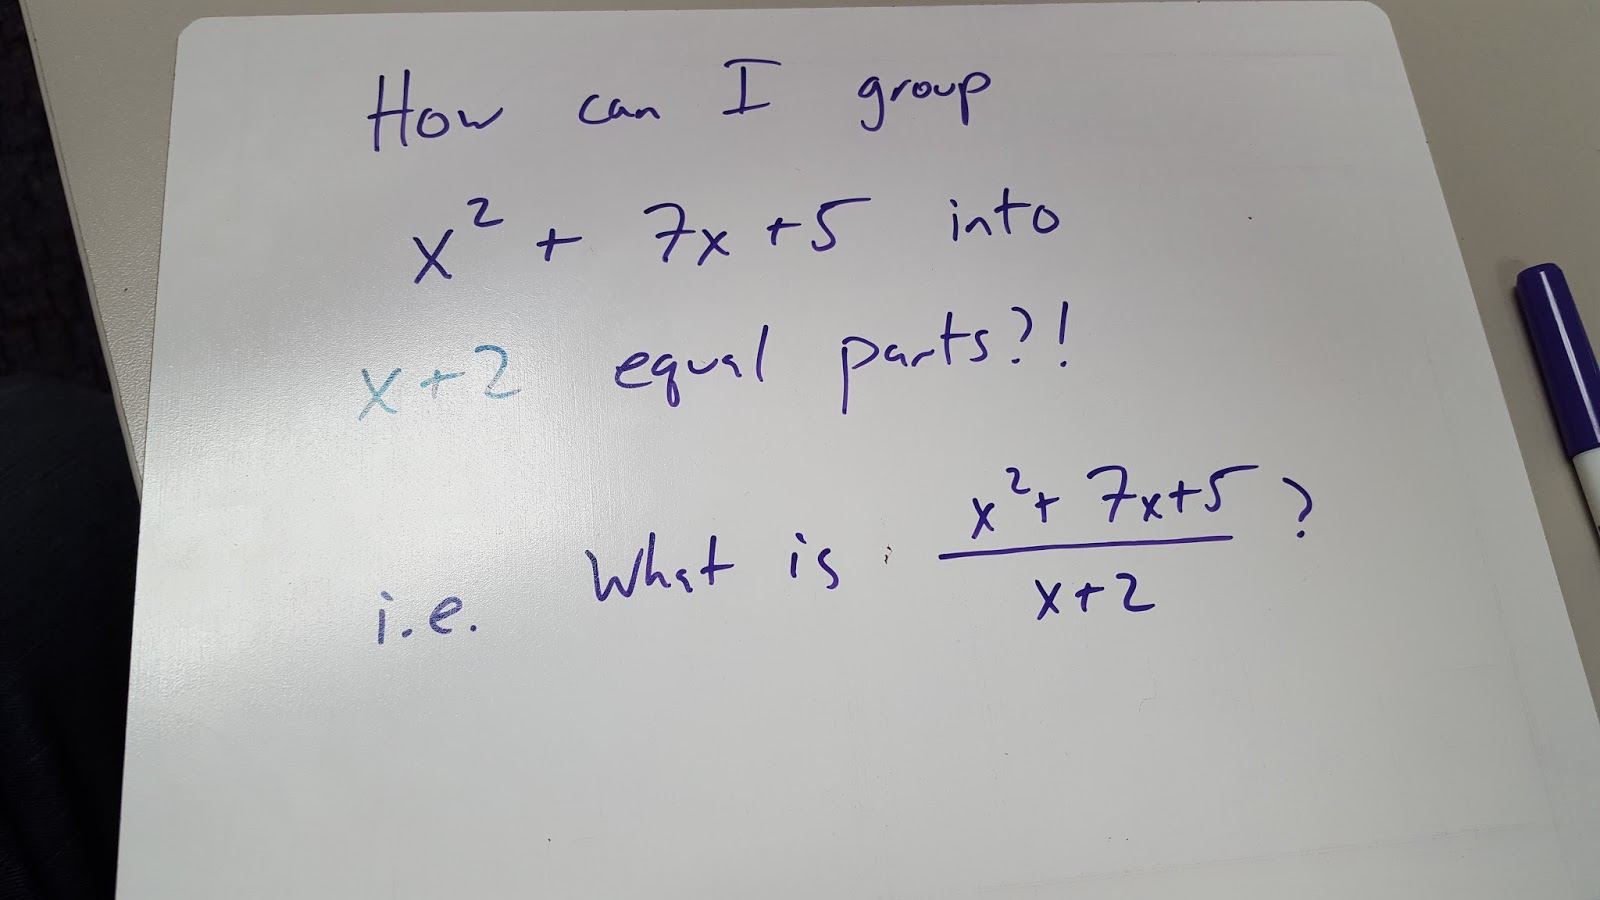 How can I group
x² + 7x + 5 into
x + 2 equal parts?!
i.e. What is (x² + 7x + 5)/(x + 2) ?